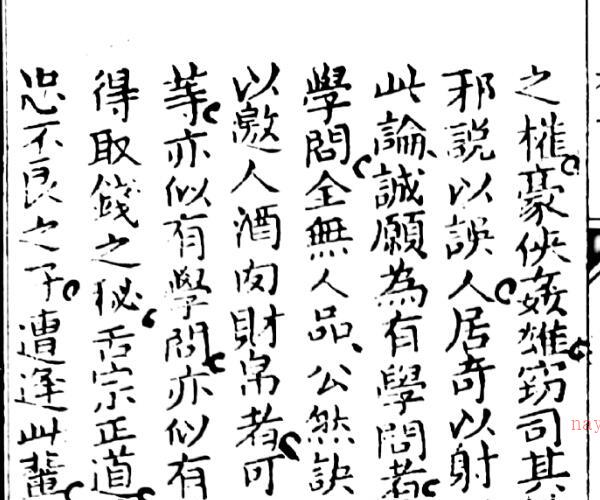 之權豪俠姦雄窃司其
邪説以誤人居奇以射
此論誠願為有學問者
學問全無人品公然訣
以邀人酒肉財帛者可
䓁亦似有學問亦似有
得取錢之秘舌宗正道
忠不良之子遭逢此輩
nay